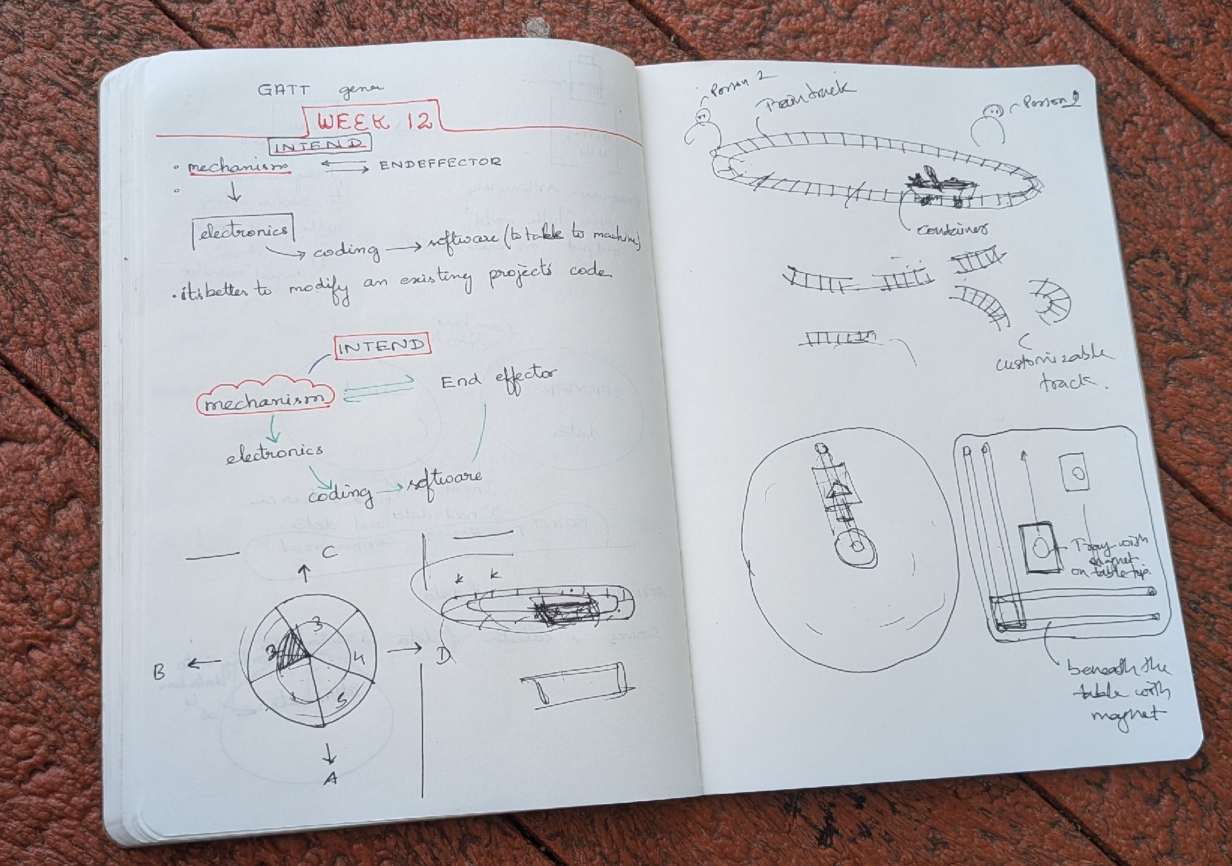 GATT gena
WEEK 12
INTEND
• mechanism ⇌ ENDEFFECTOR
•
↓
electronics
→ coding → software (to talk to machine)
• its better to modify an existing projects code
INTEND
mechanism
End effector
electronics
coding → software
C
k k
B
3
3
4
5
D
A
Person 2
Train track
Person 1
Container
customizable
track.
Tray with
magnet
on table top.
beneath the
table with
magnet